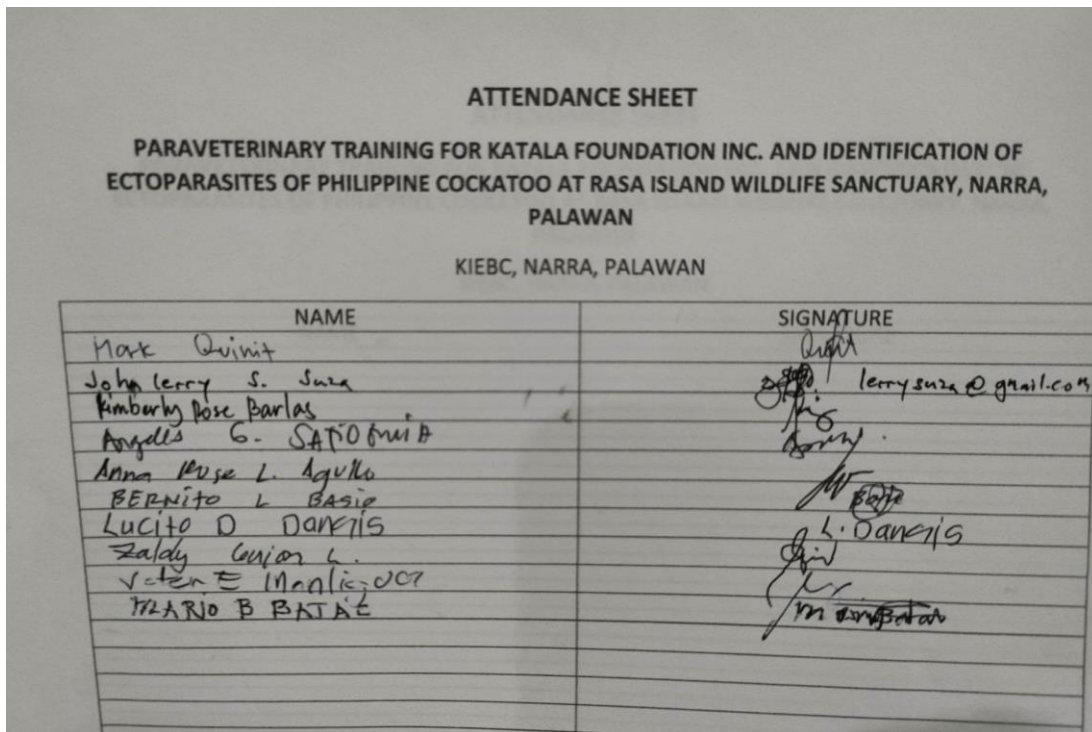 ATTENDANCE SHEET
PARAVETERINARY TRAINING FOR KATALA FOUNDATION INC. AND IDENTIFICATION OF
ECTOPARASITES OF PHILIPPINE COCKATOO AT RASA ISLAND WILDLIFE SANCTUARY, NARRA,
PALAWAN
KIEBC, NARRA, PALAWAN
NAME SIGNATURE
Mark Quinit
John lerry S. Suza lerrysuza@gmail.com
Kimberly Rose Barlas
Angeles G.
Anna Rose L. Agullo
BERNITO L BASIO
Lucito D Dangis L. Dangis
Zaldy L.
MARIO B